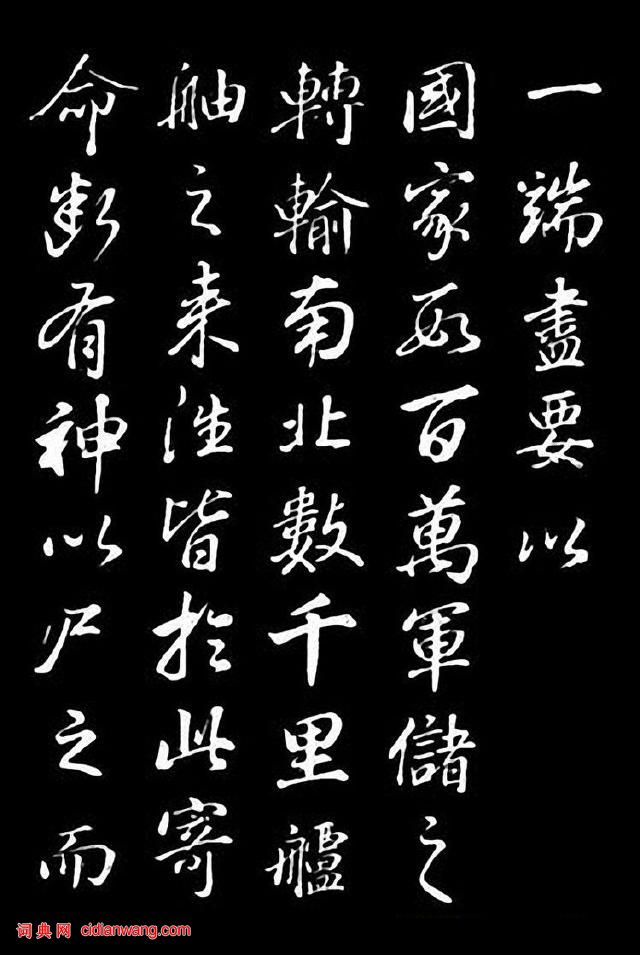 一端盡要以
國家百萬軍儲之
轉輸南北數千里艫
舳之来往皆於此寄
命斷有神以尸之而
词典网 cidianwang.com